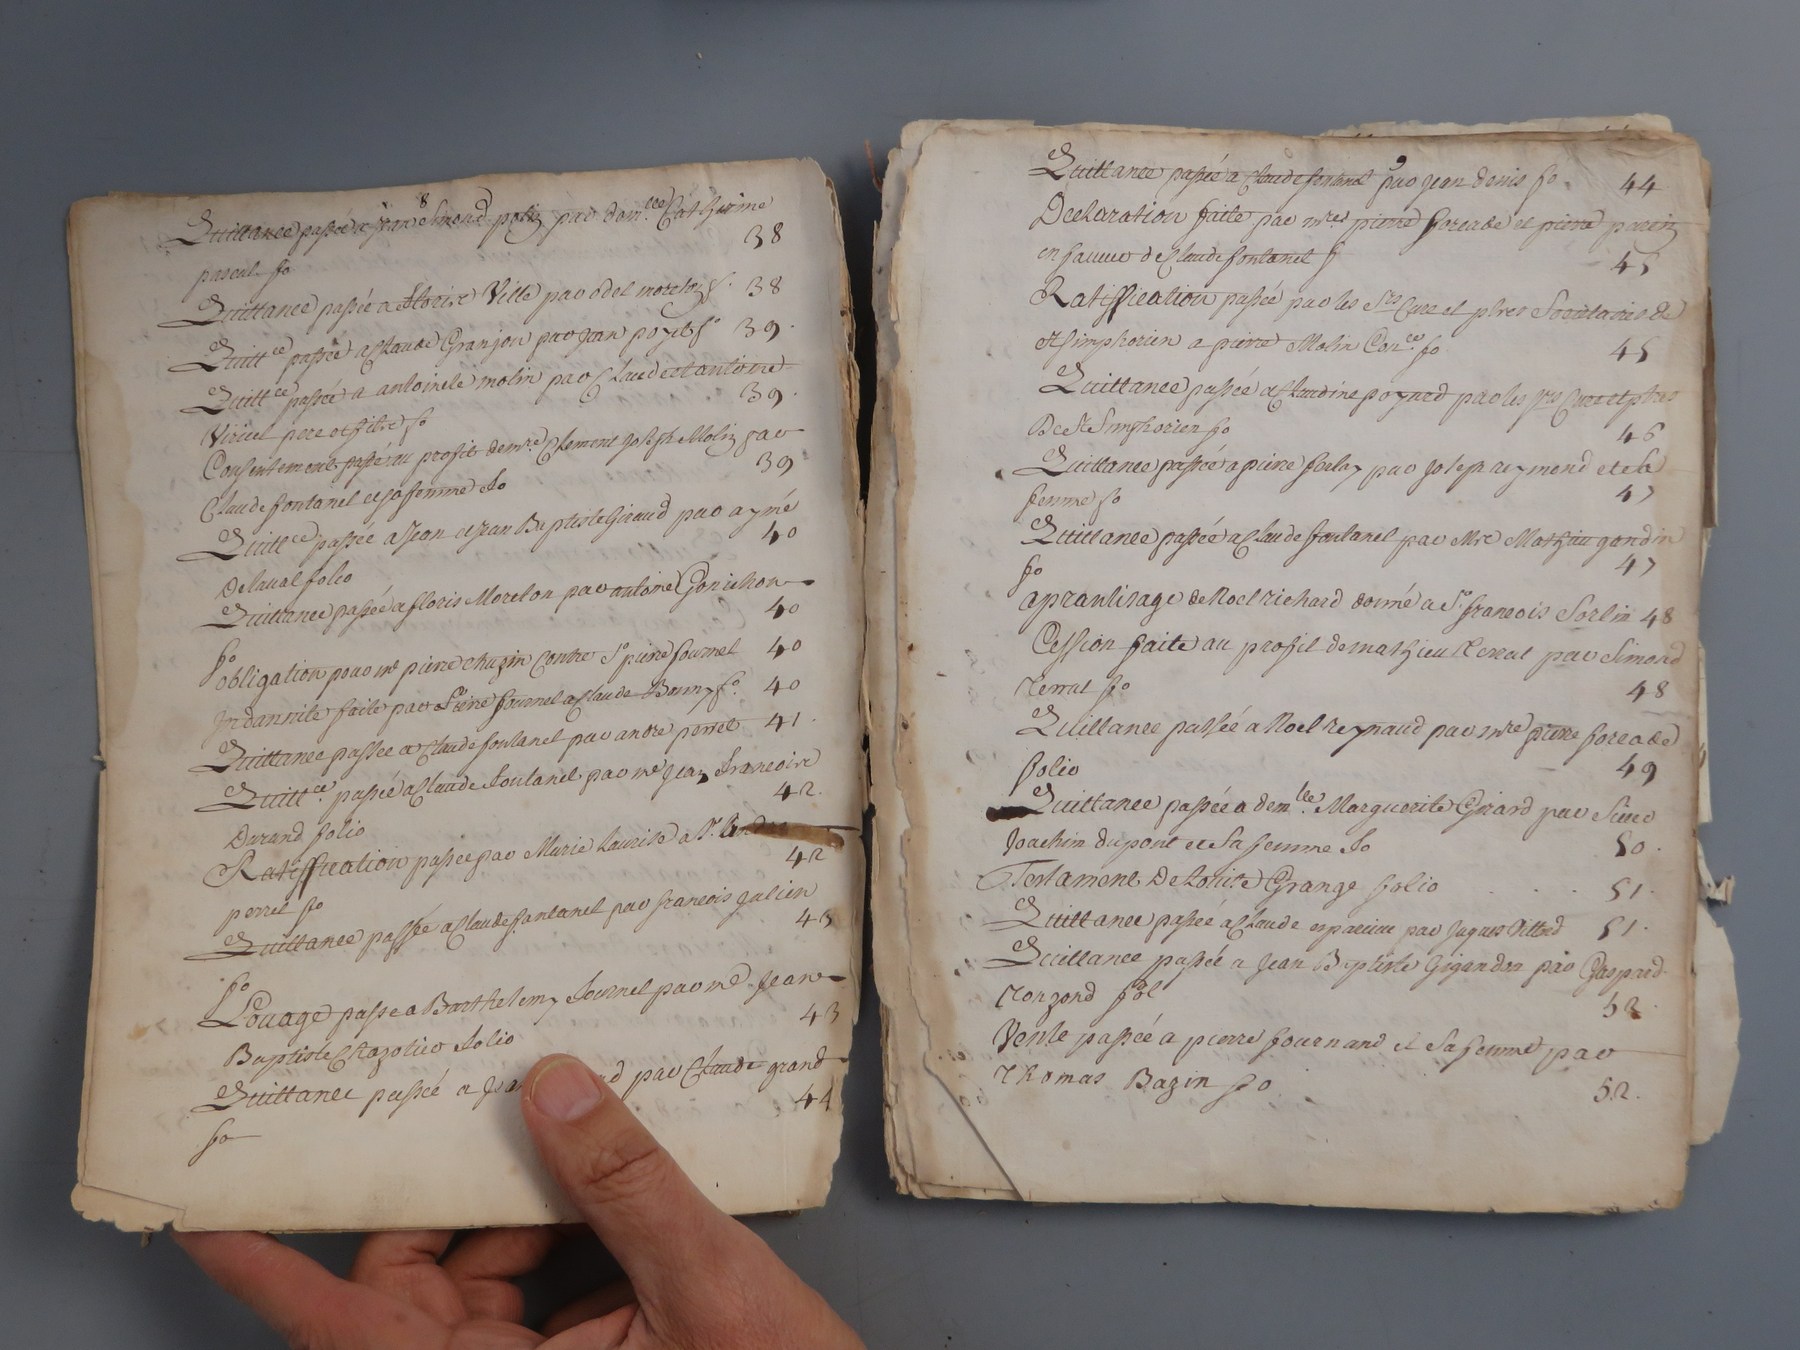 8
Quittance passée a jean Simond poliz par dam.lle Catherine
pascal fo 38
Quittance passée a Ville par moreton f. 38
Quitt.ce passée a Claude Granjon par Jean fo 39.
Quitt.ce passée a antoine molin par Claude et antoine
Viricel pere et fils fo 39.
Consentement passé au profit de mre Clement Joseph Moliz par
Claude fontanel et sa femme fo 39
Quitt.ce passée a Jean et jean Baptiste Giraud par aymé
Delaval folio 40
Quittance passée a floris Moreton par antoine Gonichon
fo 40
obligation pour me pierre chazin Contre Sr pierre fournel 40
Indannite faite par Pierre fournel a Claude Bonny fo. 40
Quittance passée a Claude fontanel par andre perret 41.
Quitt.ce passée a Claude fontanel par me Jean francoise
Durand folio 42.
Ratiffication passée par Marie Laurise a Sr
perret fo 42
Quittance passée a Claude fontanel par francois Julien
fo 43
Louage passe a Barthelemy fournel par me Jean
Baptiste folio 43
Quittance passée a par Claude grand
fo 44
9
Quittance passée a Claude fontanel par Jean denis fo. 44
Declaration faite par mres pierre foreade et pierre
en faveur de Claude fontanel f 45
Ratiffication passée par les Srs Cure et ptres Societaires de
St simphorien a pierre Molin Con.ce fo 45
Quittance passée a Claudine poyard par les srs Cure et ptres
De St Simphorien fo 46
Quittance passée a pierre par Joseph reymond et sa
femme fo 47
Quittance passée a Claude fontanel par Mre Mathieu gondin
fo 47
aprantisage de Noel richard donné a Sr francois Sorlin 48
Cession faite au profit de mathieu terrat par Simond
terrat fo 48
Quittance passée a Noel reynaud par mre pierre foreade
folio 49
Quittance passée a dem.lle Marguerite Girard par Sieur
Joachim dupont et sa femme fo 50.
Testament De Grange folio . . . . 51.
Quittance passée a Claude par Jaques 51.
Quittance passée a Jean Baptiste Gigandon par Gaspard
fol 52.
Vente passée a pierre fournand et sa femme par
Thomas Bazin fo 52.